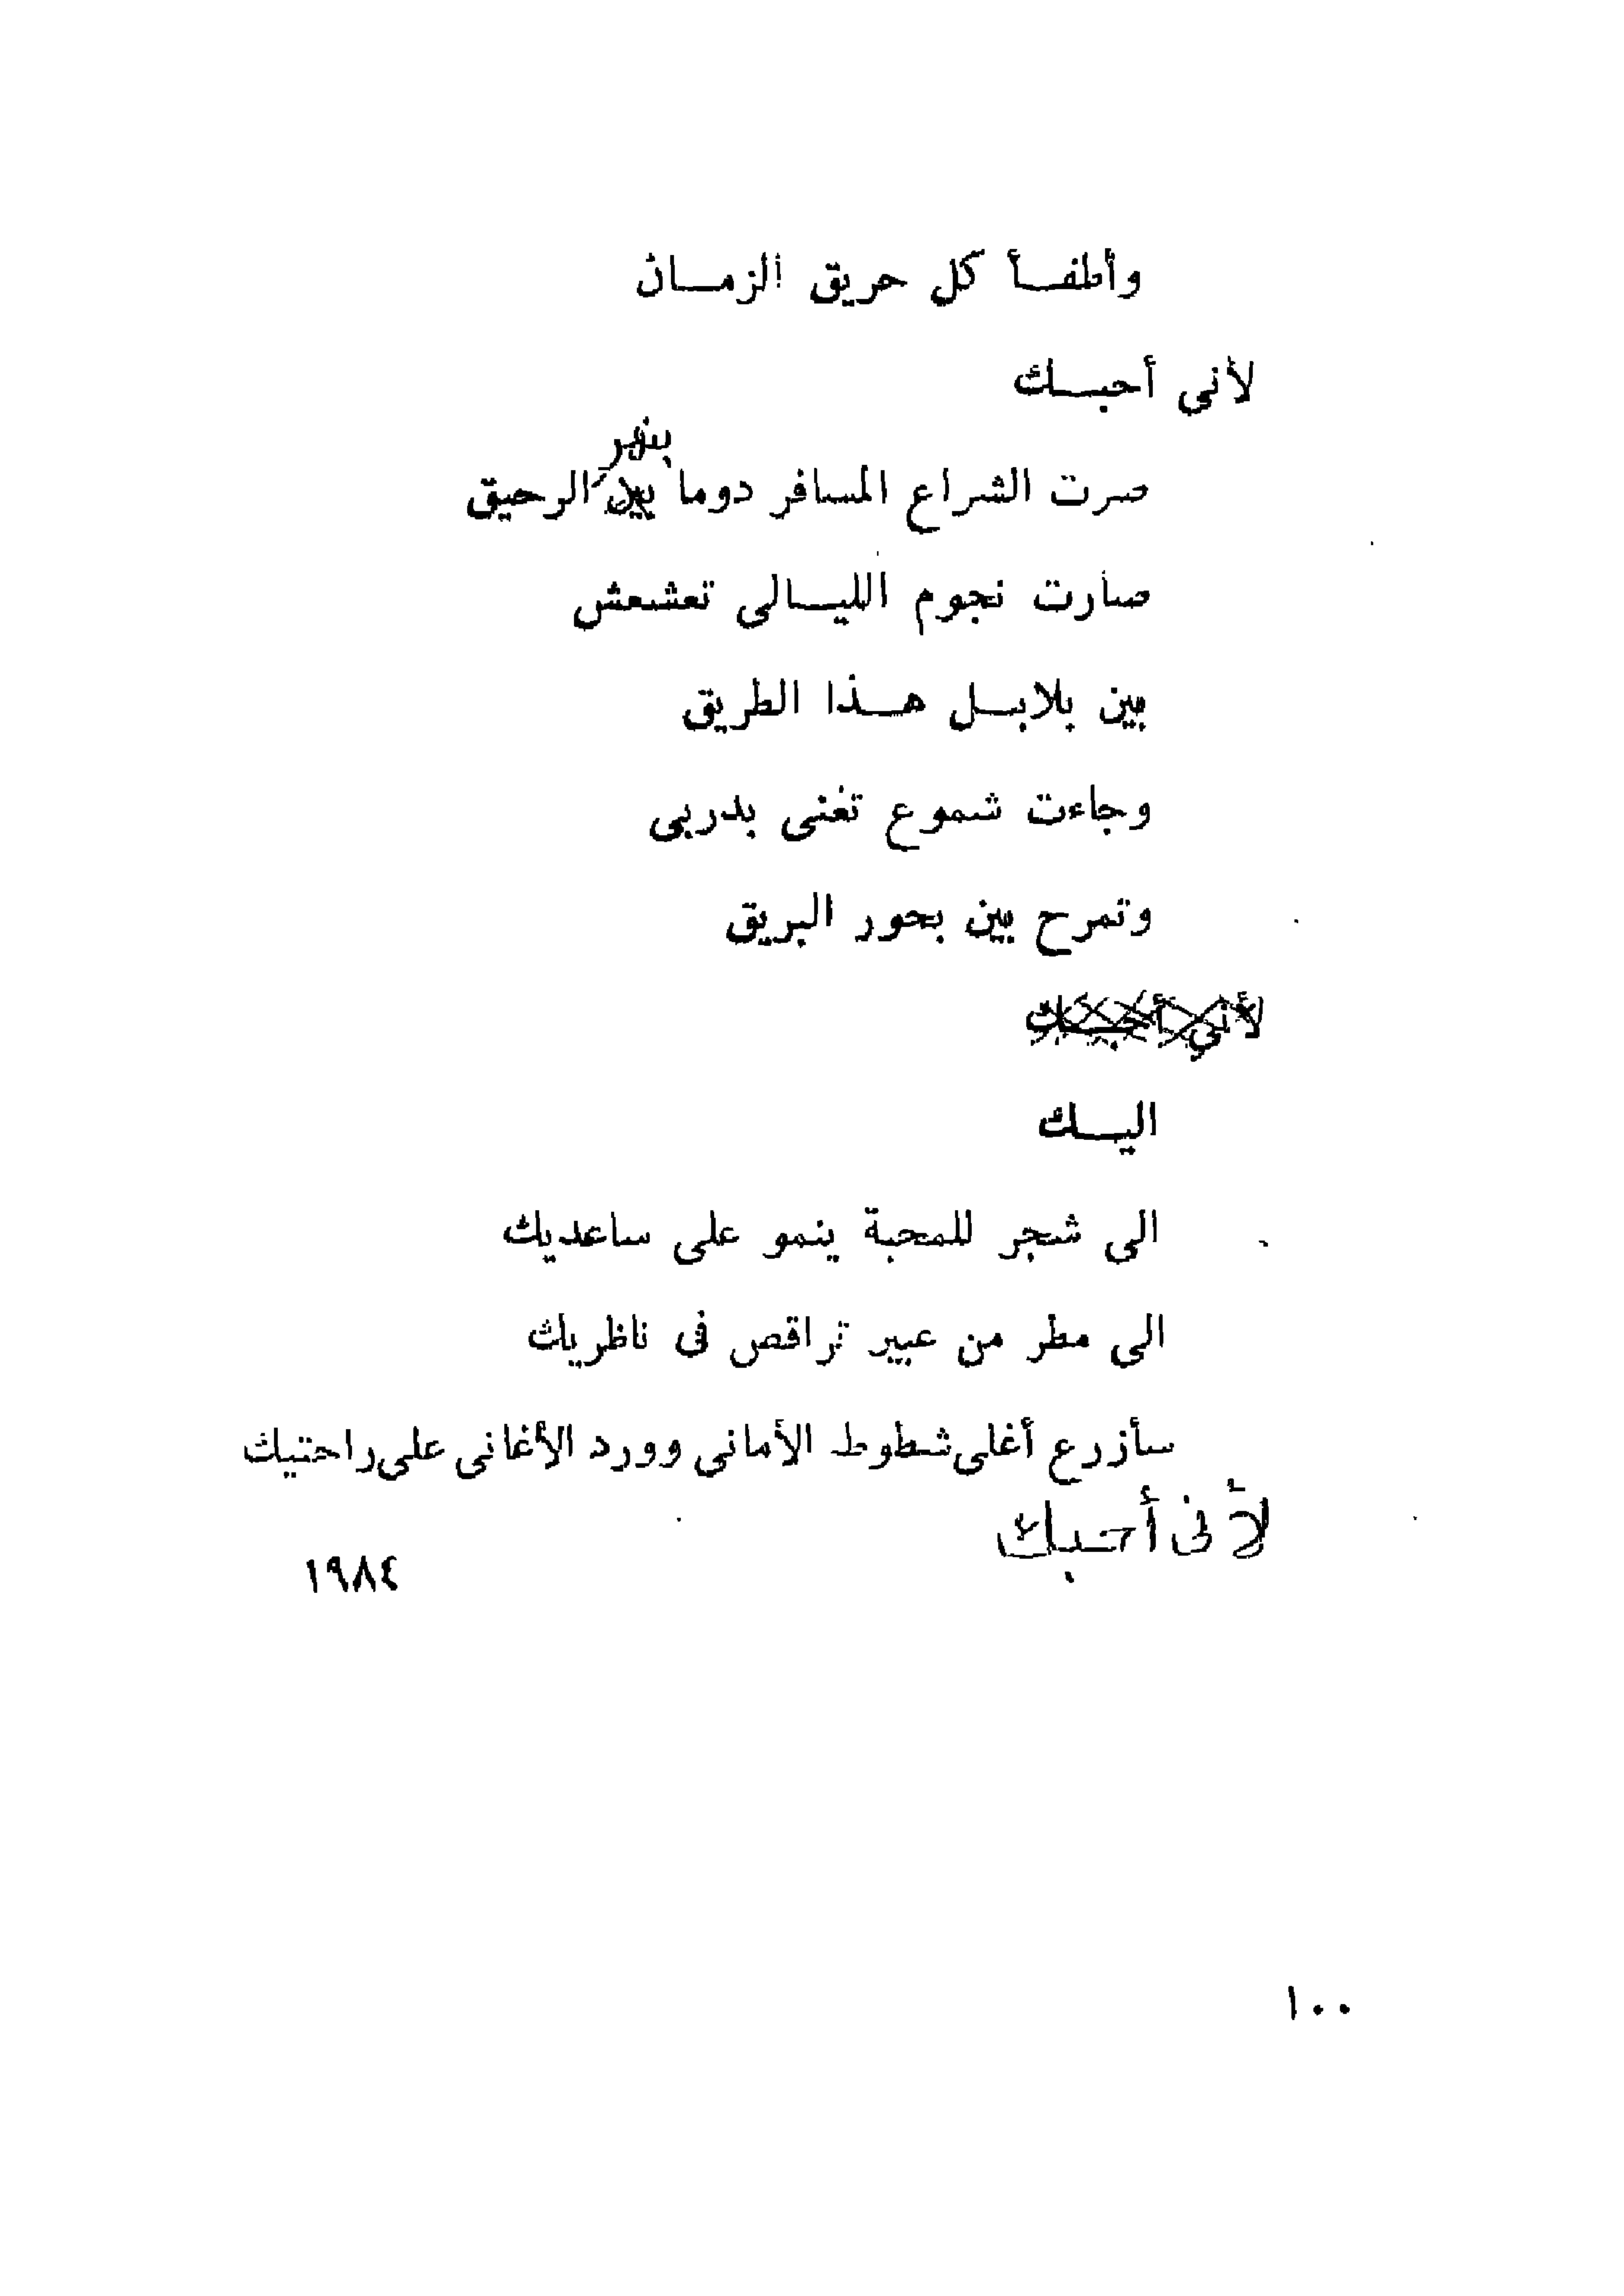 وأطفأ كل حريق الزمان
لأني أحبك
بنهر
صرت الشراع المسافر دوما بين الرحيق
صارت نجوم الليالى تعشعش
بين بلابل هذا الطريق
وجاءت شموع تغنى بدربى
وتمرح بين بحور البريق
لأني أحبك
اليك
الى شجر للمحبة ينمو على ساعديك
الى مطر من عبير تراقص فى ناظريك
سأزرع أغلى شطوط الأمانى وورد الأغانى على راحتيك
لأنى أحبك
١٩٨٤
١٠٠